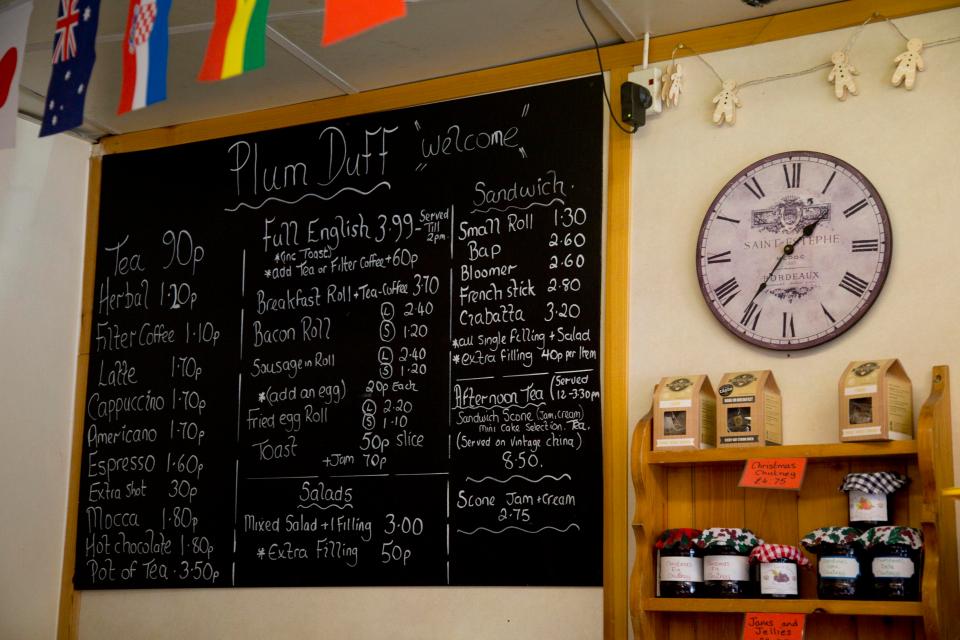 Plum Duff "welcome"
Tea 90p
Herbal 1.20p
Filter Coffee 1.10p
Latte 1.70p
Cappuccino 1.70p
Americano 1.70p
Espresso 1.60p
Extra Shot 30p
Mocca 1.80p
Hot chocolate 1.80p
Pot of Tea . 3.50p
Full English 3.99 - Served Till 2pm.
*(inc Toast)
*add Tea or Filter Coffee + 60p
Breakfast Roll + Tea-Coffee 3.70
Bacon Roll L 2.40
S 1.20
Sausage in Roll L 2.40
S 1.20
*(add an egg) 20p Each
Fried egg Roll L 2.20
S 1.10
Toast 50p slice
+Jam 70p
Salads
Mixed Salad + 1 Filling 3.00
*Extra Filling 50p
Sandwich.
Small Roll 1.30
Bap 2.60
Bloomer 2.60
French Stick 2.80
Ciabatta 3.20
*all single filling + Salad
*extra filling 40p per Item
Afternoon Tea (Served 12-3.30pm
Sandwich Scone (Jam, cream)
mini cake selection. Tea.
(Served on vintage china)
8.50.
Scone Jam + Cream
2.75
SAINT-ESTEPHE
MEDOC
BORDEAUX
XII
I
II
III
IIII
V
VI
VII
VIII
IX
X
XI
Christmas
Chutney
£4.75
Jams and
Jellies